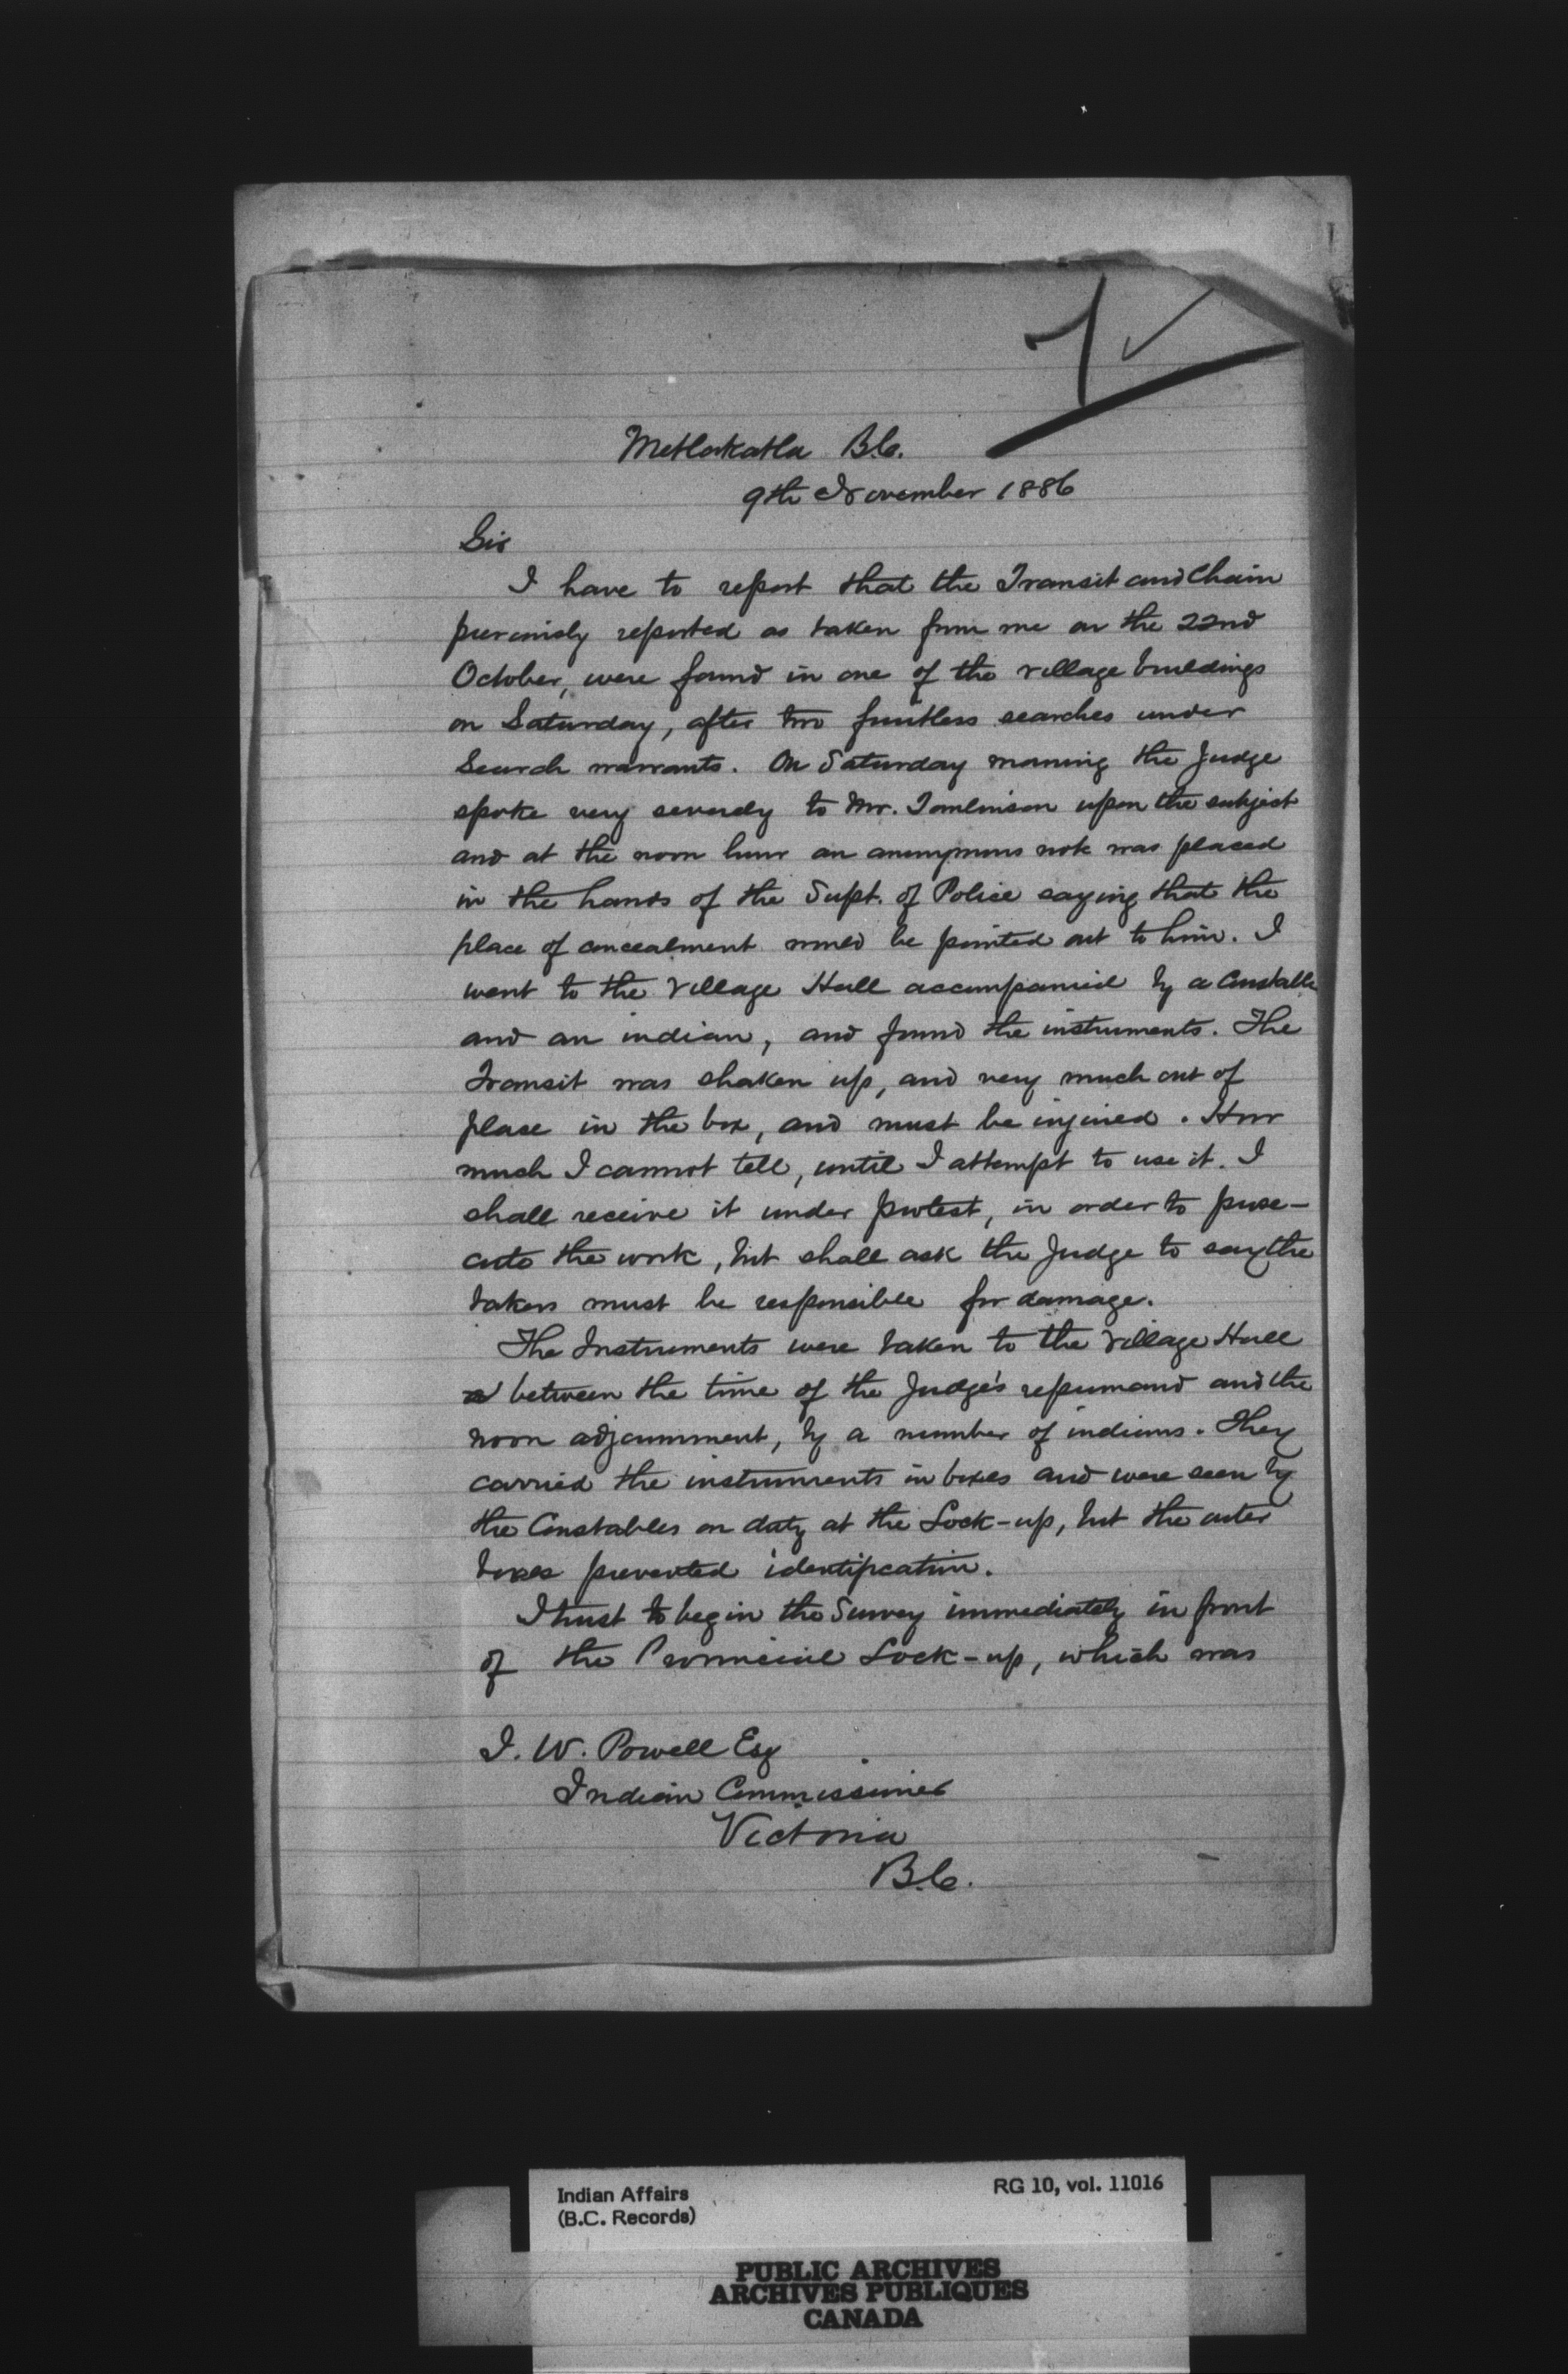 7 ✓
Metlakatla B.C.
9th November 1886
Sir
I have to report that the Transit and Chain
previously reported as taken from me on the 22nd
October, were found in one of the village buildings
on Saturday, after two fruitless searches under
Search warrants. On Saturday morning the Judge
spoke very severely to Mr. Tomlinson upon the subject
and at the noon hour an anonymous note was placed
in the hands of the Supt. of Police saying that the
place of concealment would be pointed out to him. I
went to the Village Hall accompanied by a Constable
and an indian, and found the instruments. The
Transit was shaken up, and very much out of
place in the box, and must be injured. How
much I cannot tell, until I attempt to use it. I
shall receive it under protest, in order to prose-
cute the work, but shall ask the Judge to say the
takers must be responsible for damage.
The Instruments were taken to the Village Hall
between the time of the Judge's reprimand and the
noon adjournment, by a number of indians. They
carried the instruments in boxes and were seen by
the Constables on duty at the Lock-up, but the outer
boxes prevented identification.
I trust to begin the Survey immediately in front
of the Provincial Lock-up, which was
I. W. Powell Esq
Indian Commissioner
Victoria
B.C.
Indian Affairs
(B.C. Records)
RG 10, vol. 11016
PUBLIC ARCHIVES
ARCHIVES PUBLIQUES
CANADA